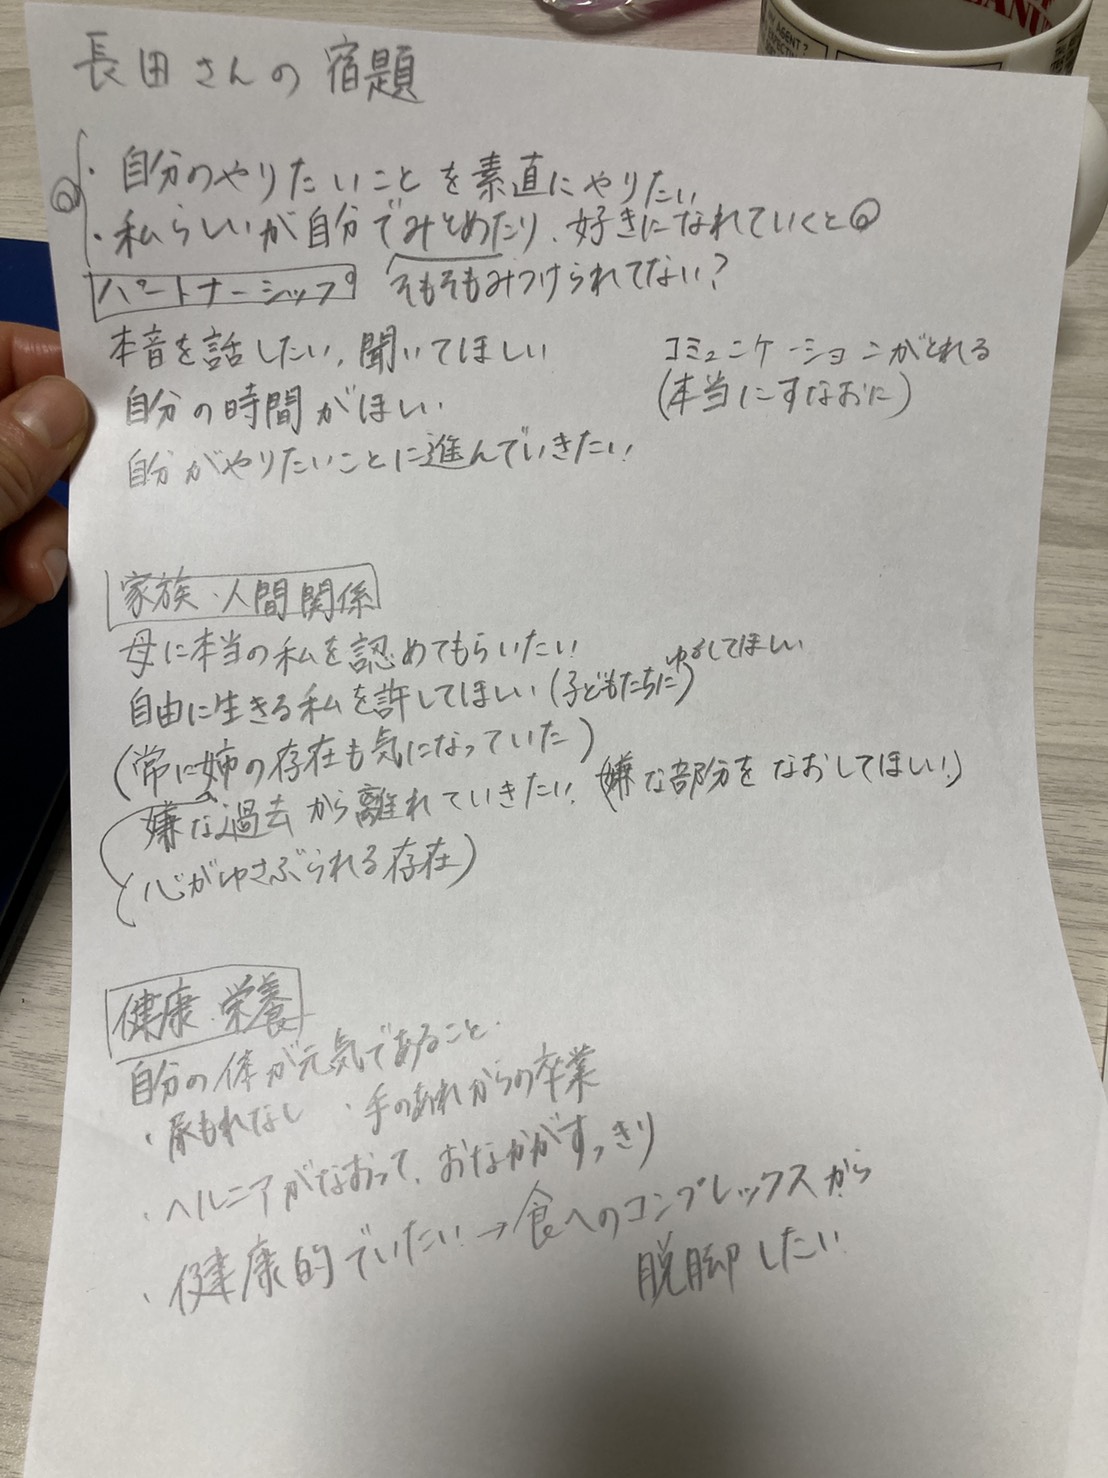 長田さんの宿題
・自分のやりたいことを素直にやりたい
・私らしいが自分でみとめたり、好きになれていくと◎
パートナーシップ
そもそもみつけられてない?
本音を話したい、聞いてほしい
コミュニケーションがとれる
(本当にすなおに)
自分の時間がほしい
自分がやりたいことに進んでいきたい
家族・人間関係
母に本当の私を認めてもらいたい
自由に生きる私を許してほしい(子どもたちに)ゆるしてほしい
(常に姉の存在も気になっていた)
嫌な過去から離れていきたい(嫌な部分をなおしてほしい)
(心がゆさぶられる存在)
健康・栄養
自分の体が元気であること
・尿もれなし ・手のあれからの卒業
・ヘルニアがなおって、おなかがすっきり
・健康的でいたい→食へのコンプレックスから
脱脚したい
AGENT?
EANU